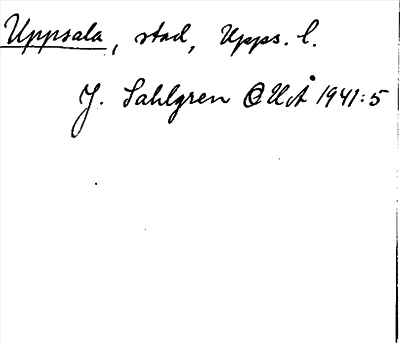 Uppsala, stad, Upps. l.
J. Sahlgren @ UUÅ 1941:5